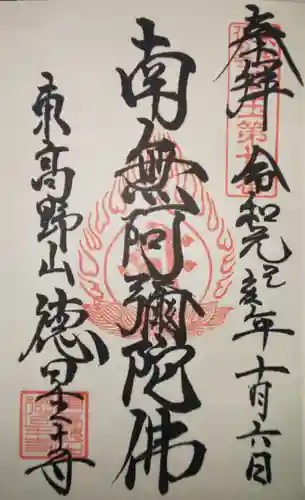 奉拝 令和元己亥年十月六日
南無阿彌陀佛
東高野山 徳星寺